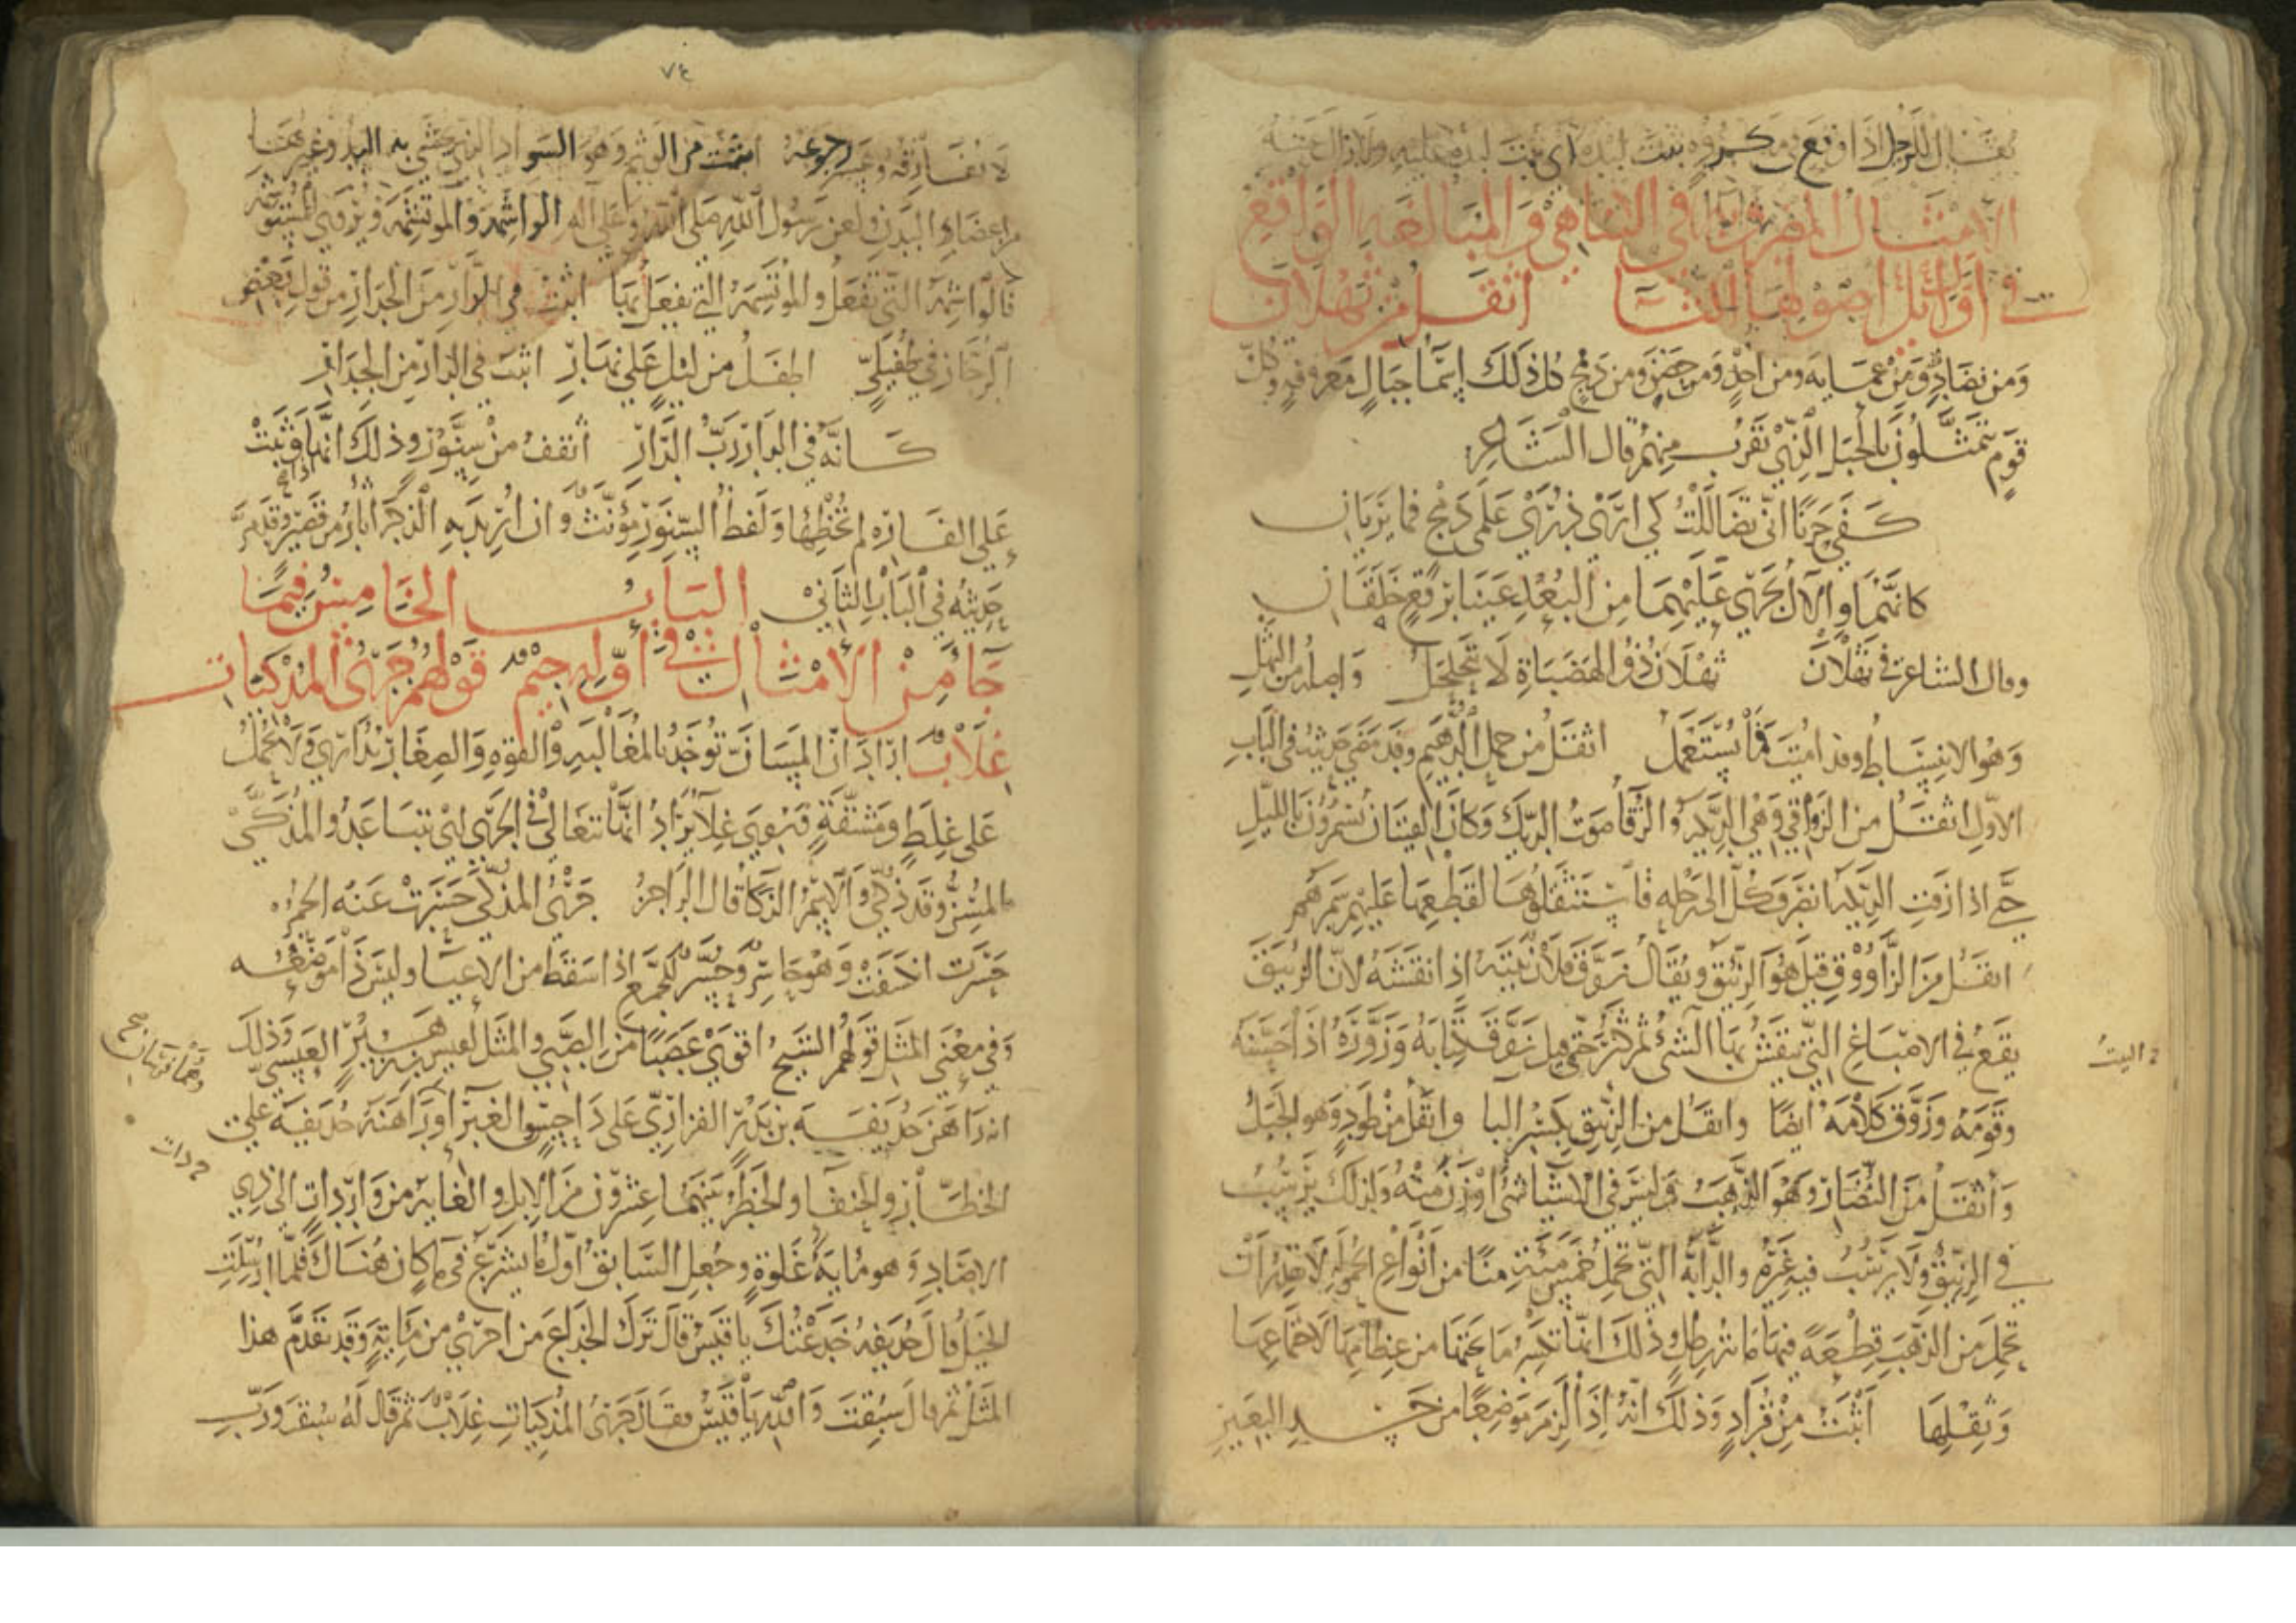 يقال للرجل اذا وقع في مكروه ثبت لبده اى ثبت لبده عليه ولا زال
الامثال المضروبة في التناهي والمبالغة الواقع
في اوائل اصولها الثاء اثقل من ثهلان
ومن نضاد ومن عماية ومن احد ومن حضن ومن دمخ كل ذلك انما جبال معروفة وكل
قوم يتمثلون بالجبل الذي يقرب منهم قال الشاعر
كفى حزنا اني تطاللت كي ارى ذرى علمى دمخ فما يريان
كانهما والآل يجري عليهما من البعد عينا برقع خلقان
وقال الشاعر في ثهلان ثهلان ذو الهضبات لا يتحلحل واصله من الثهل
وهو الانبساط وقد اميت فما يستعمل اثقل من حمل الدهيم وقد مضى حديثه في الباب
الاول اثقل من الزواقي وهي الديكة والزقا صوت الديك وكان الفتيان يسمرون بالليل
حتى اذا زقت الديكة انصرف كل الى رحله فاستثقلوها لقطعها عليهم سمرهم
اثقل من الزاووق قيل هو الزئبق ويقال زوق فلان بيته اذا نقشه لان الزئبق
يقع في الاصباغ التي ينقش بها الشيء ثم كثر حتى قيل زوق كتابه وزوره اذا حسنه
2 البيت
وقومه وزوق كلامه ايضا واثقل من الزئبق بكسر البا واثقل من طود وهو الجبل
واثقل من النضار وهو الذهب وليس في الاشيا شيء اوزن منه ولذلك يرسب
في الزئبق ولا يرسب فيه غيره والدابة التي تحمل خمس مئة منا من انواع الحمولة لا يمكن ان
تحمل من الذهب قطعة فيها مائة رطل وذلك انها تكسر ما تحتها من عظامها لاجتماعها
وثقلها اثبت من قراد وذلك انه اذا لزم موضعا من جسد البعير
٧٤
لا تفارقه وعسر رجوعه اثبت من الوشم وهو السواد الذي يحشى به اليد وغيرها
من اعضاء البدن ولعن رسول الله صلى الله وعلى اله الواشمة والموتشمة ويروى المستوشمة
فالواشمة التي تفعل والموتشمة التي يفعل بها اثبت في الدار من الجدار من قول بعض
الرجاز في طفيلي اطفل من ليل على نهار اثبت في الدار من الجدار
كانه في الدار رب الدار اثقف من سنور وذلك انها اذا وثبت
على الفارة لم تخطها ولفظ السنور مؤنث وان اريد به الذكر اثأر من قصير وقد مر
حديثه في الباب الثاني الباب الخامس فيما
جا من الامثال في اوله جيم قولهم جري المذكيات
غلاب اراد ان المسان توخذ بالمغالبة والقوة والصغار تدارى ولا تحمل
على غلظ ومشقة ويروى غلاء يراد انها تتغالى في الجري اي تتباعد والمذكي
المسن وقد ذكى والاسم الذكا قال الراجز جري المذكي حسرت عنه الحمر
حسرت انكشفت وهو حاسر وحسر للجمع اذا سقط من الاعياء وليس ذا موضعه
وفي معنى المثل قولهم الشيخ اقوى عصبا من الصبي والمثل لقيس بن زهير العبسي وذلك
انه راهن حذيفة بن بدر الفزاري على داحس والغبرا وراهنه حذيفة على
الخطار والحنفا والخطر بينهما عشرون من الابل والغاية من واردات الى ذي
الاصاد وهو ماية غلوة وجعل السابق اول ما يشرع في ما كان هناك فلما ارسلت
الخيل قال حذيفة خدعتك يا قيس قال ترك الخداع من اجرى من ماية وقد تقدم هذا
المثل ثم قال سبقت والله يا قيس فقال جري المذكيات غلاب ثم قال له سبق ورب